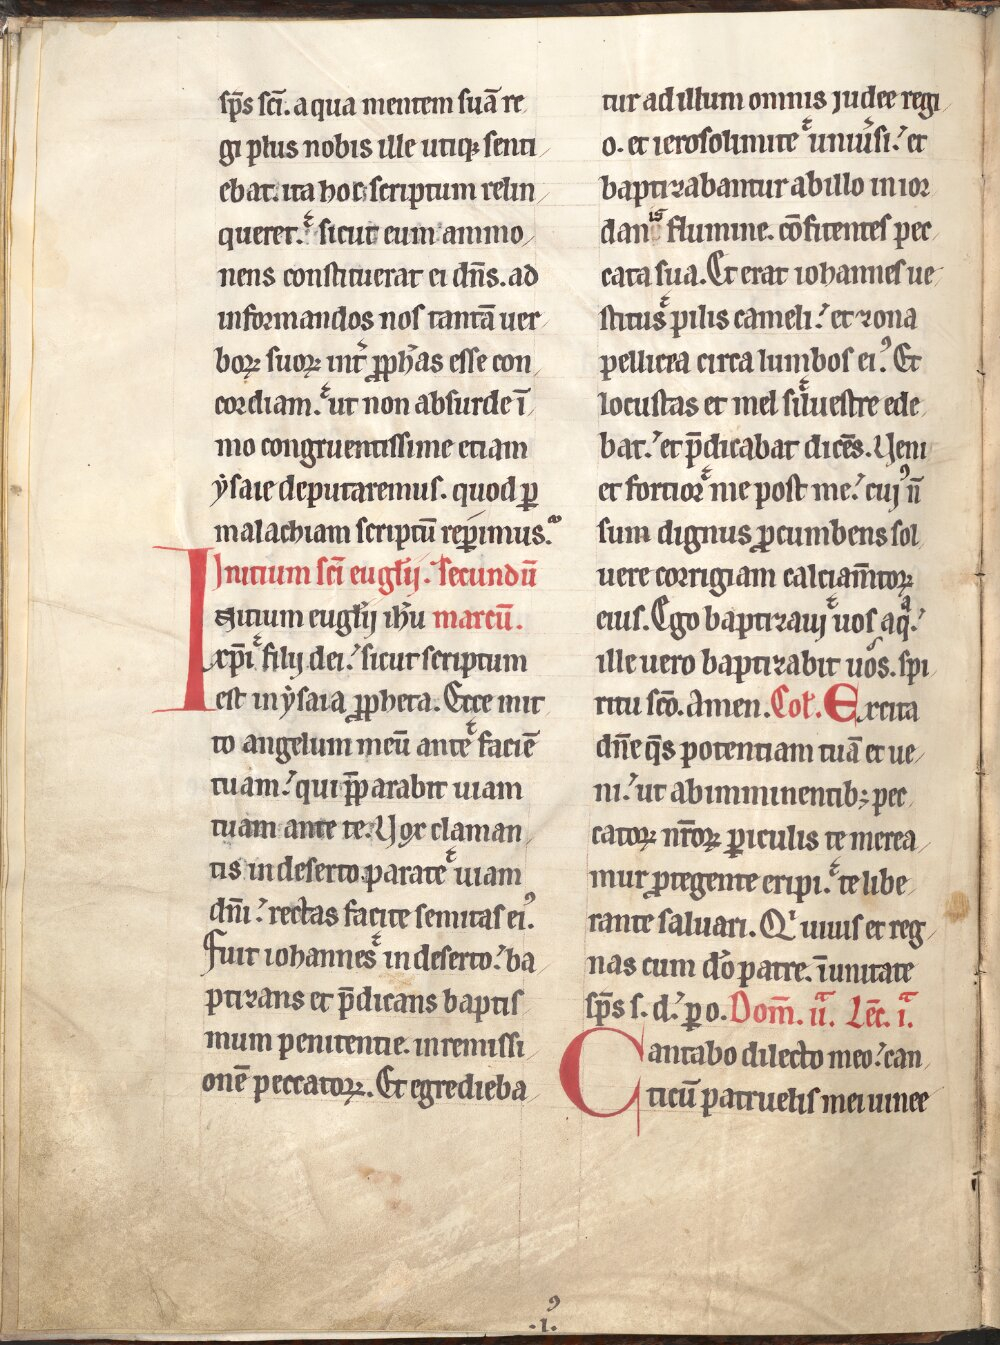 sp̄s sc̄i. a qua mentem suā re
gi plus nobis ille utiqꝫ senti
ebat. ita hoc scriptum relin
queret. sicut eum ammo
nens constituerat ei dn̄s. ad
informandos nos tantā uer
boꝝ suoꝝ int̉ ꝓph̄as esse con
cordiam. ut non absurde ī
mo congruentissime etiam
ẏsaie deputaremus. quod ꝑ
malachiam scriptū rep̄imus.
Initium sc̄i euḡlij. secundū
Initium euḡlij ih̄u marcū.
xp̄i filij dei. sicut scriptum
est in ẏsaia ꝓpheta. Ecce mit
to angelum meū ante faciē
tuam. qui p̄parabit uiam
tuam ante te. Vox claman
tis in deserto. parate uiam
dn̄i. rectas facite semitas eiꝰ.
Fuit iohannes in deserto. ba
ptizans et p̄dicans baptis
mum penitentie. in remissi
onē peccatoꝝ. Et egredieba
tur ad illum omnis judee regi
o. et ierosolimite uniūsi. et
baptizabantur ab illo in ior
danis flumine. cōfitentes pec
cata sua. Et erat iohannes ue
stitus pilis cameli. et zona
pellicea circa lumbos eiꝰ. Et
locustas et mel siluestre ede
bat. et p̄dicabat dicēs. Veni
et fortior me post me. cujꝰ n̄
sum dignus ꝓcumbens sol
uere corrigiam calciam̄toꝝ
eius. Ego baptizauj uos aq̄.
ille uero baptizabit uos. spi
ritu sc̄o. Amen. Coł. Excita
dn̄e qs̄ potentiam tuā et ue
ni. ut ab imminentibꝫ pec
catoꝝ nr̄oꝝ ꝑiculis te merea
mur ꝓtegente eripi. te libe
rante saluari. Qͥ uiuis et reg
nas cum dō patre. ī unitate
sp̄s s. d. ꝑ o. Dom̄. ii.ᵃ Lec̄. i.ᵃ
Cantabo dilecto meo. can
ticū patruelis mei uinee
ꝯ
.1.